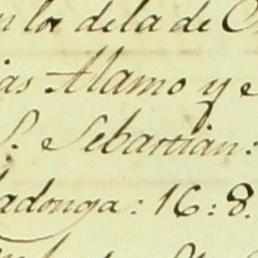 n los de la de C
ias Alamo y e
S. Sebastian:
adonga: 16: 8.